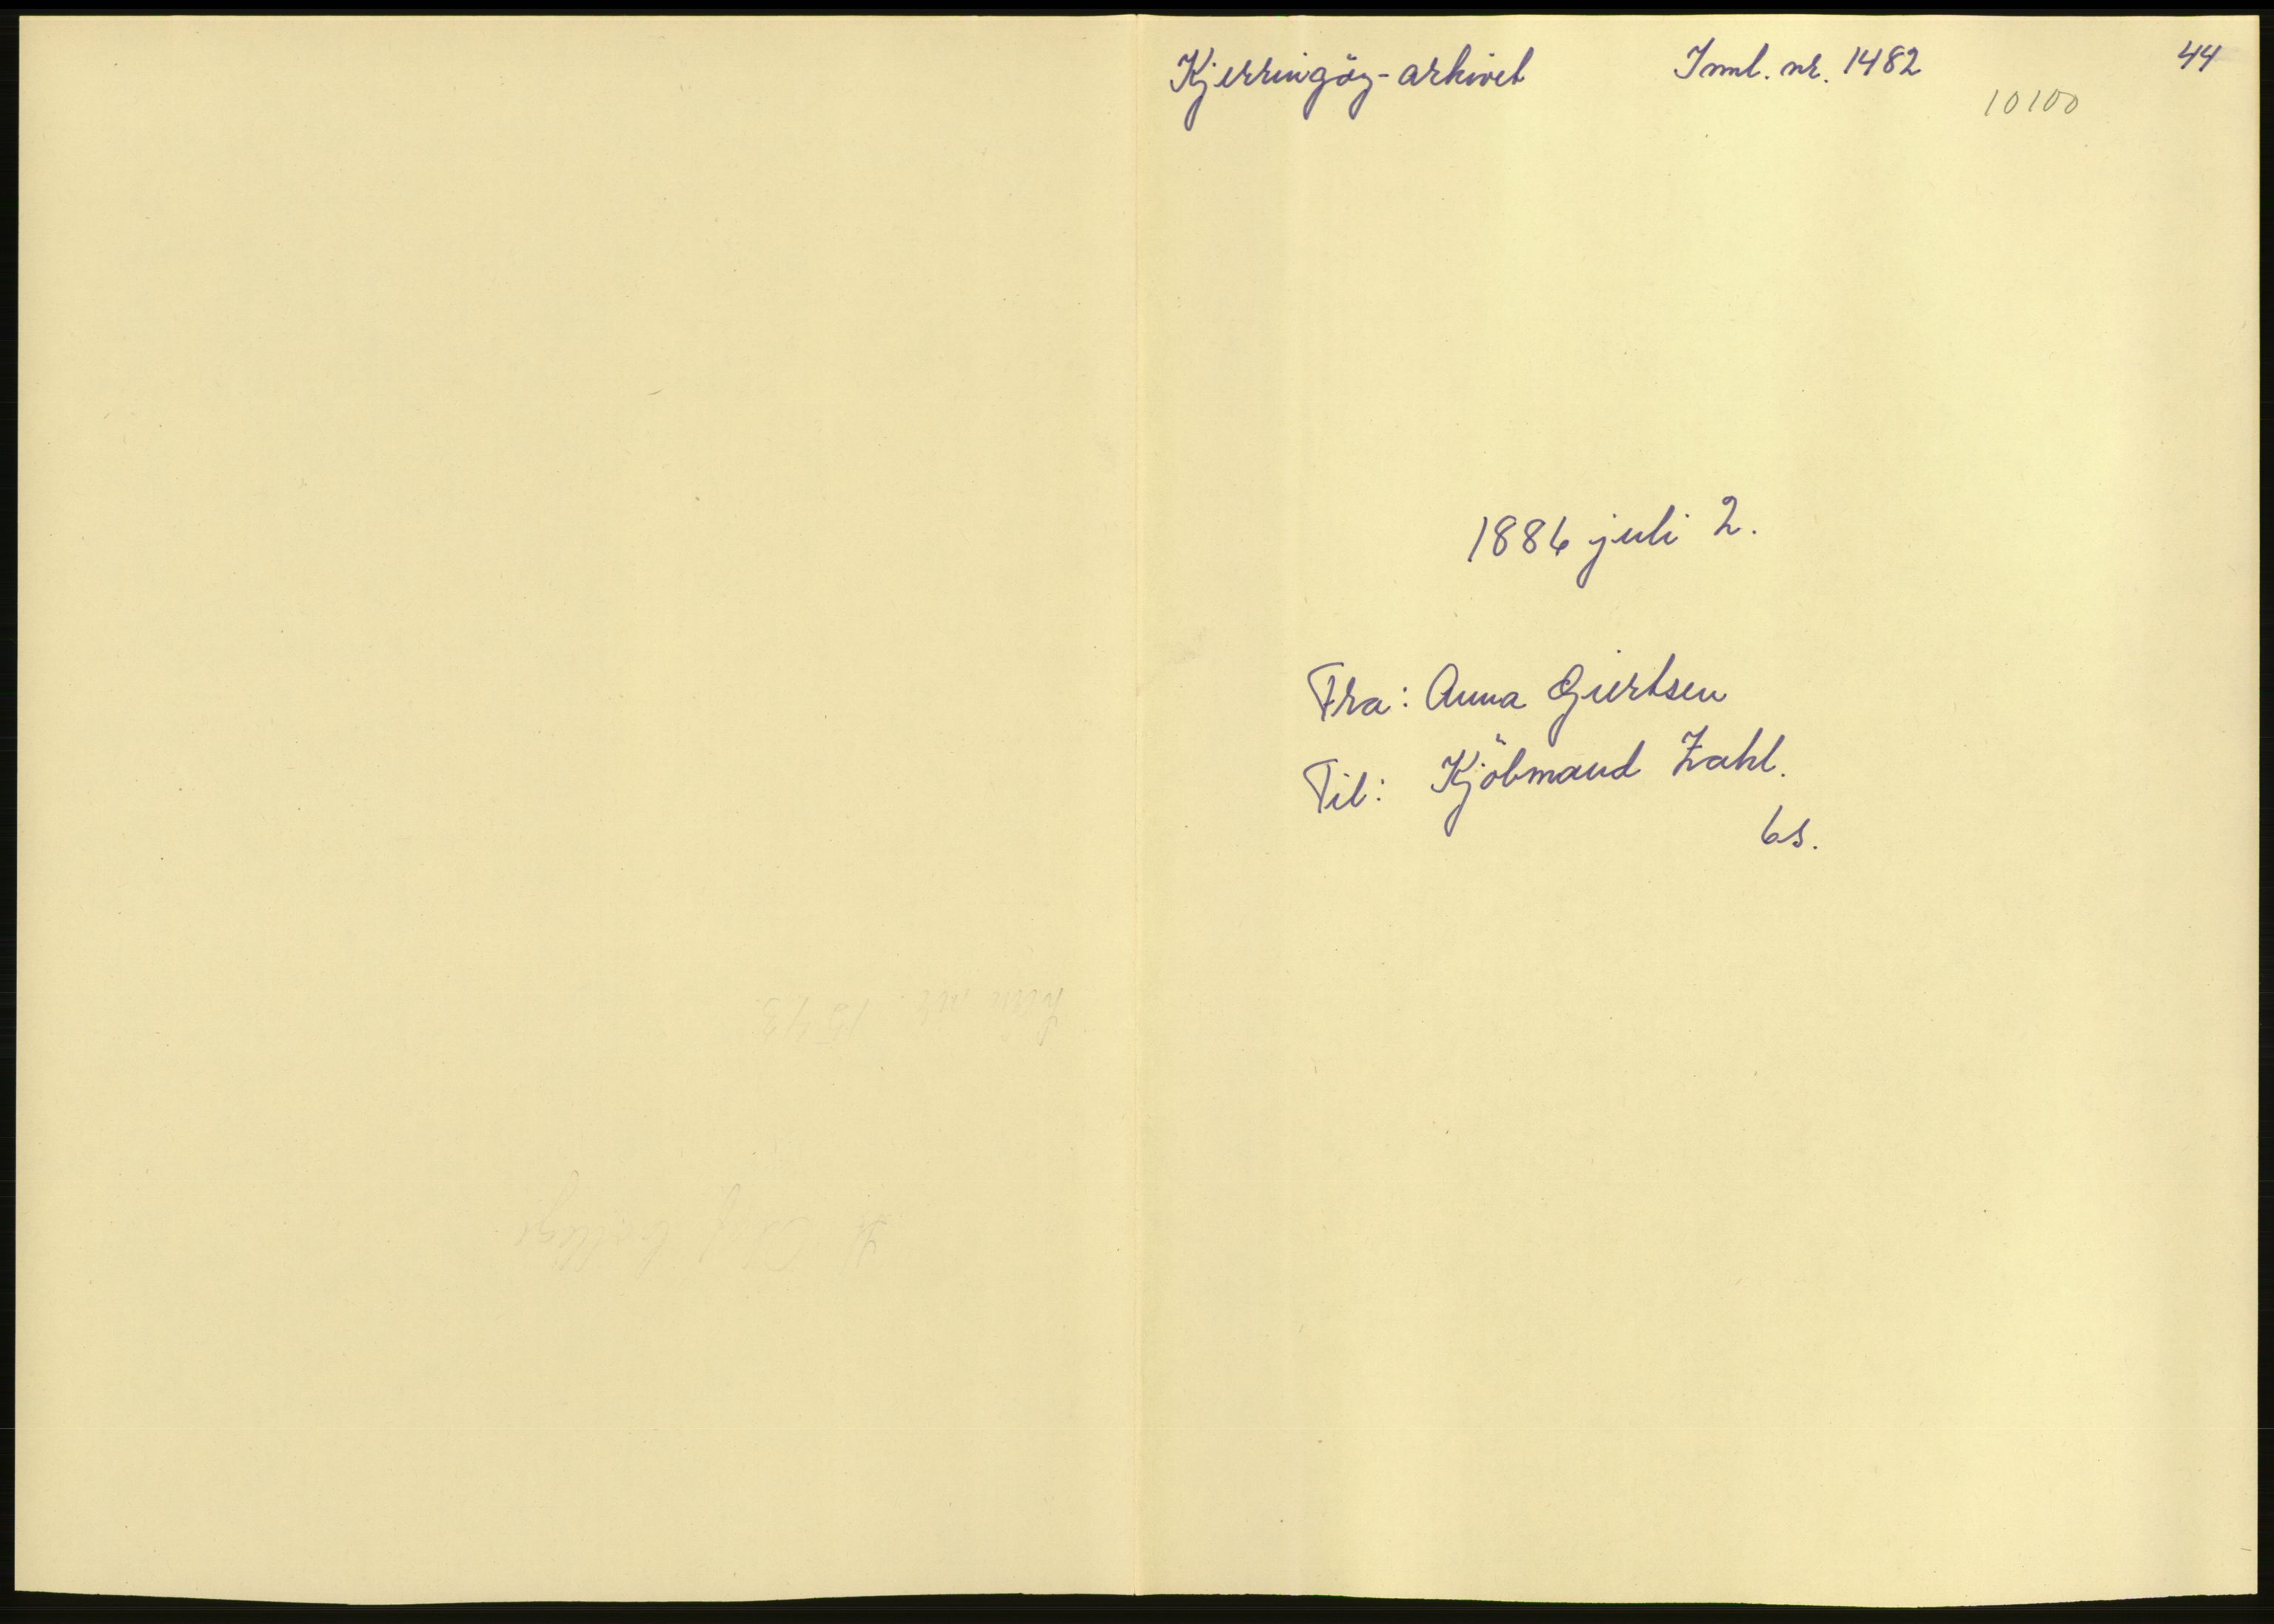 Kjerringöy-arkivet Innl. nr. 1482 44
10100
1886 juli 2.
Fra: Anna Gjertsen
Til: Kjöbmand Zahl.
6s.